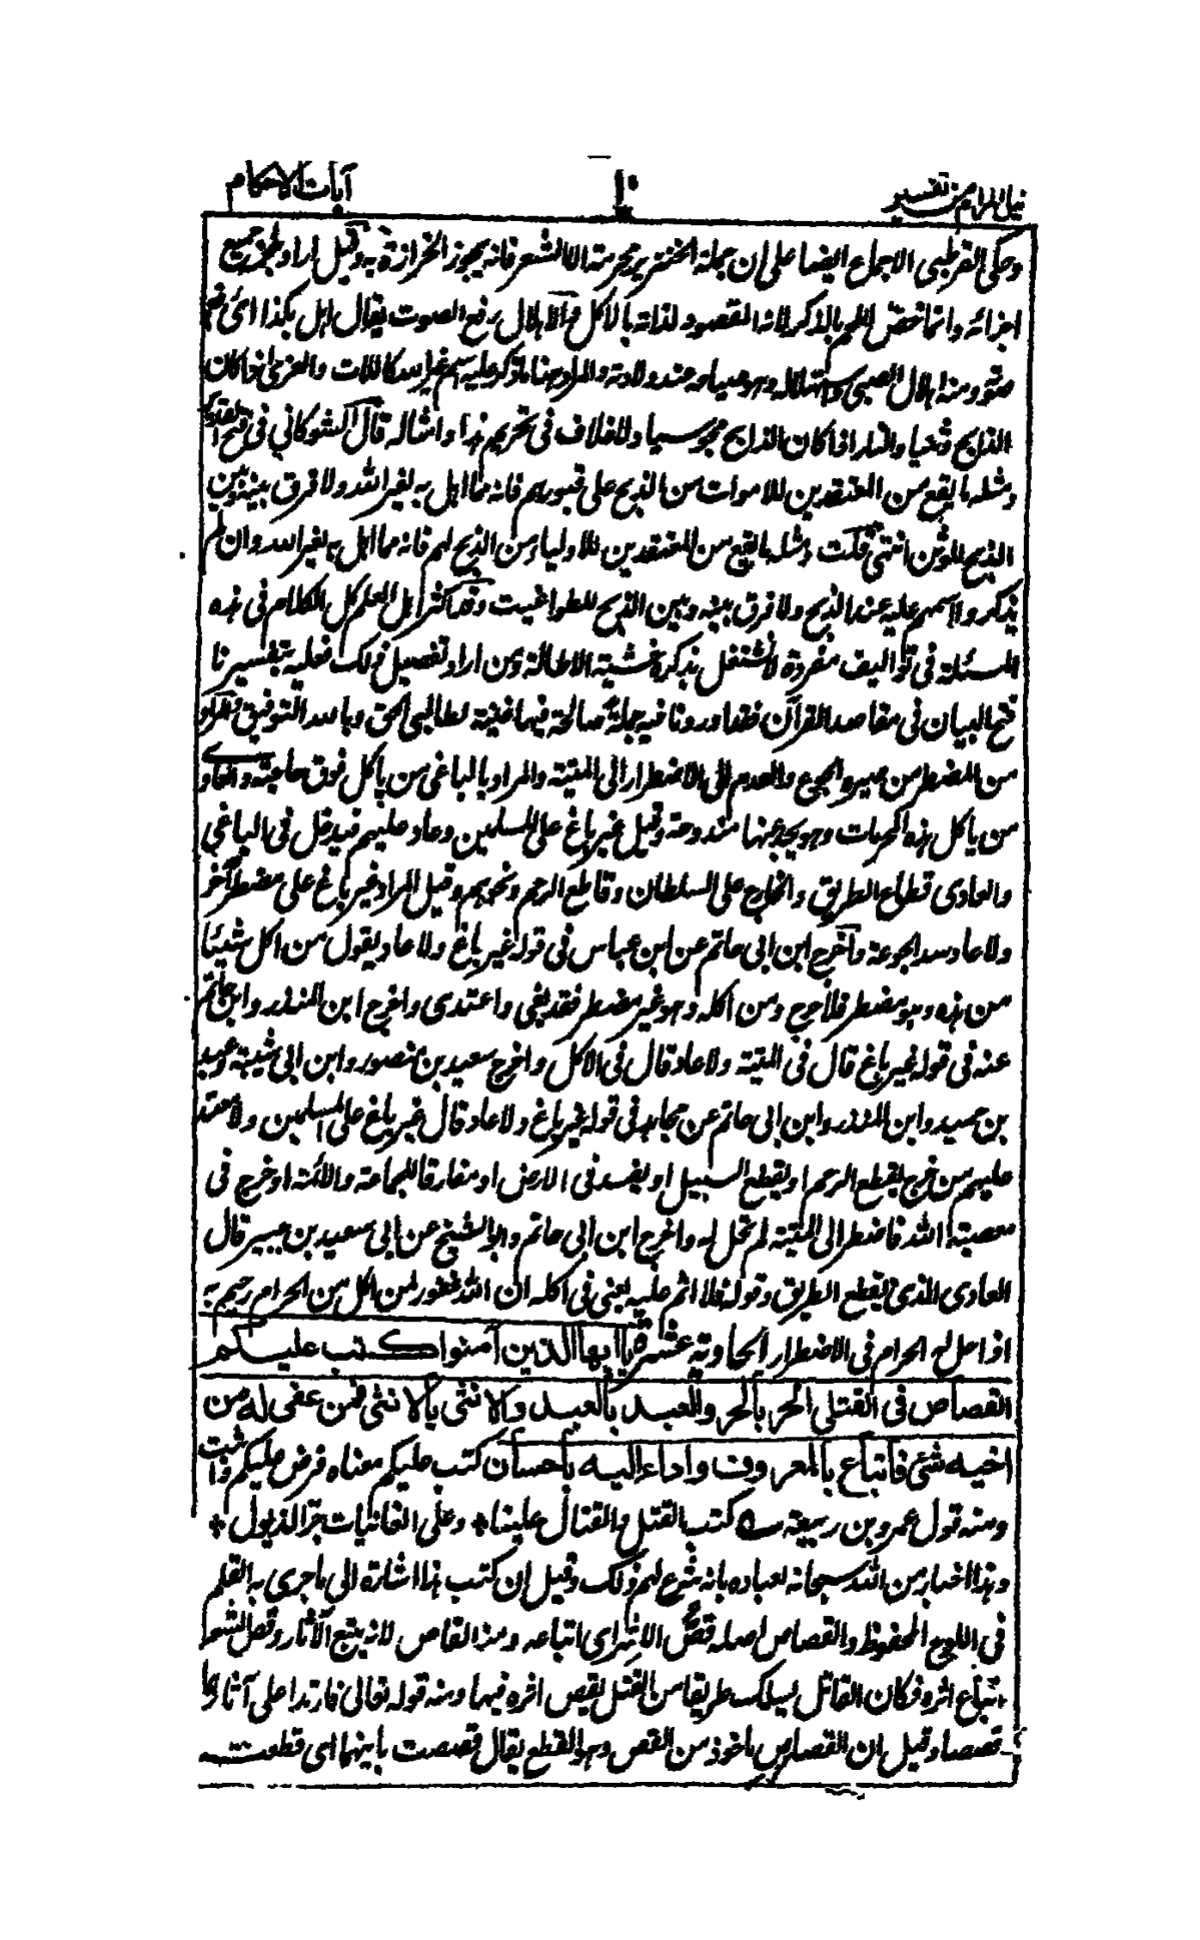 نيل المرام من تفسير
١٠
آيات الاحكام
وحكى القرطبي الاجماع ايضا على ان جملة الخنزير محرمة الا الشعر فانه يجوز الخرازة به وقيل اراد بلحمه جميع
اجزائه وانما خص اللحم بالذكر لانه المقصود لذاته بالاكل والاهلال رفع الصوت يقال اهل بكذا اي رفع
صوته ومنه اهلال الصبي واستهلاله وهو صياحه عند ولادته والمراد هنا ما ذكر عليه اسم غير الله كاللات والعزى اذا كان
الذابح وثنيا والنار اذا كان الذابح مجوسيا ولا خلاف في تحريم هذا وامثاله قال الشوكاني في فتح القدير
ومثله ما يقع من المعتقدين للاموات من الذبح على قبورهم فانه مما اهل به لغير الله ولا فرق بينه وبين
الذبح للوثن انتهى قلت ومثله ما يقع من المعتقدين للاولياء من الذبح لهم فانه مما اهل به لغير الله وان لم
يذكروا اسمهم عليه عند الذبح ولا فرق بينه وبين الذبح للطواغيت وقد اكثر اهل العلم كل الكلام في هذه
المسئلة في تواليف مفردة لا نشتغل بذكرها خشية الاطالة ومن اراد تفصيل ذلك فعليه بتفسيرنا
فتح البيان في مقاصد القرآن فقد اوردنا فيه جملة صالحة فيها غنية لطالبي الحق وبالله التوفيق
من المضطر من صيره الجوع والعدم الى الاضطرار الى الميتة والمراد بالباغي من ياكل فوق حاجته والعادي
من ياكل هذه المحرمات وهو يجد عنها مندوحة وقيل غير باغ على المسلمين وعاد عليهم فيدخل في الباغي
والعادي قطاع الطريق والخارج على السلطان وقاطع الرحم ونحوهم وقيل المراد غير باغ على مضطر آخر
ولا عاد سد الجوعة واخرج ابن ابي حاتم عن ابن عباس في قوله غير باغ ولا عاد يقول من اكل شيئا
من هذه وهو مضطر فلا حرج ومن اكله وهو غير مضطر فقد بغى واعتدى واخرج ابن المنذر وابن ابي حاتم
عنه في قوله غير باغ قال في الميتة ولا عاد قال في الاكل واخرج سعيد بن منصور وابن ابي شيبة وعبد
بن حميد وابن المنذر وابن ابي حاتم عن مجاهد في قوله غير باغ ولا عاد قال غير باغ على المسلمين ولا معتد
عليهم من خرج يقطع الرحم او يقطع السبيل او يفسد في الارض او مفارقا للجماعة والائمة او خرج في
معصية الله فاضطر الى الميتة لم تحل له واخرج ابن ابي حاتم وابو الشيخ عن ابي سعيد بن جبير قال
العادي الذي يقطع الطريق وقوله فلا اثم عليه يعني في اكله ان الله غفور لمن اكل من الحرام رحيم به
اذ احل له الحرام في الاضطرار الحاوية عشرة يا ايها الذين آمنوا كتب عليكم
القصاص في القتلى الحر بالحر والعبد بالعبد والانثى بالانثى فمن عفى له من
اخيه شئ فاتباع بالمعروف واداء اليه باحسان كتب عليكم معناه فرض عليكم واثبت
ومنه قول عمرو بن ربيعة ؎ كتب القتل والقتال علينا * وعلى الغانيات جر الذيول *
وهذا اخبار من الله سبحانه لعباده بانه شرع لهم ذلك وقيل ان كتب هنا اشارة الى ما جرى به القلم
في اللوح المحفوظ والقصاص اصله قص الاثر اي اتباعه ومنه القاص لانه يتبع الآثار وقص الشعر
اتباع اثره فكان القاتل يسلك طريقا من القتل يقص اثره فيها ومنه قوله تعالى فارتدا على آثارهما
قصصا وقيل ان القصاص ماخوذ من القص وهو القطع يقال قصصت ما بينهما اي قطعته